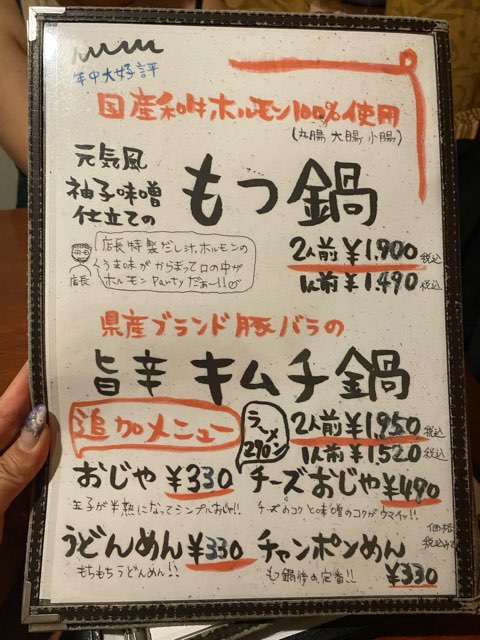 年中大好評
国産和牛ホルモン100%使用
(丸腸 大腸 小腸)
元気風
柚子味噌
仕立ての
もつ鍋
店長
店長特製だし汁、ホルモンの
うま味がからまって口の中が
ホルモンPartyだぁ〜!!♡
2人前 ¥1,900 税込
1人前 ¥1,490 税込
県産ブランド豚バラの
旨辛 キムチ鍋
追加メニュー
ラーメン
290円
2人前 ¥1,950 税込
1人前 ¥1,520 税込
おじや ¥330
玉子が半熟になってシンプルおじや!!
チーズおじや ¥490
チーズのコクと味噌のコクがウマイッ!!
価格
税込み
うどんめん ¥330
もちもちうどんめん!!
チャンポンめん
¥330
もつ鍋 の定番!!